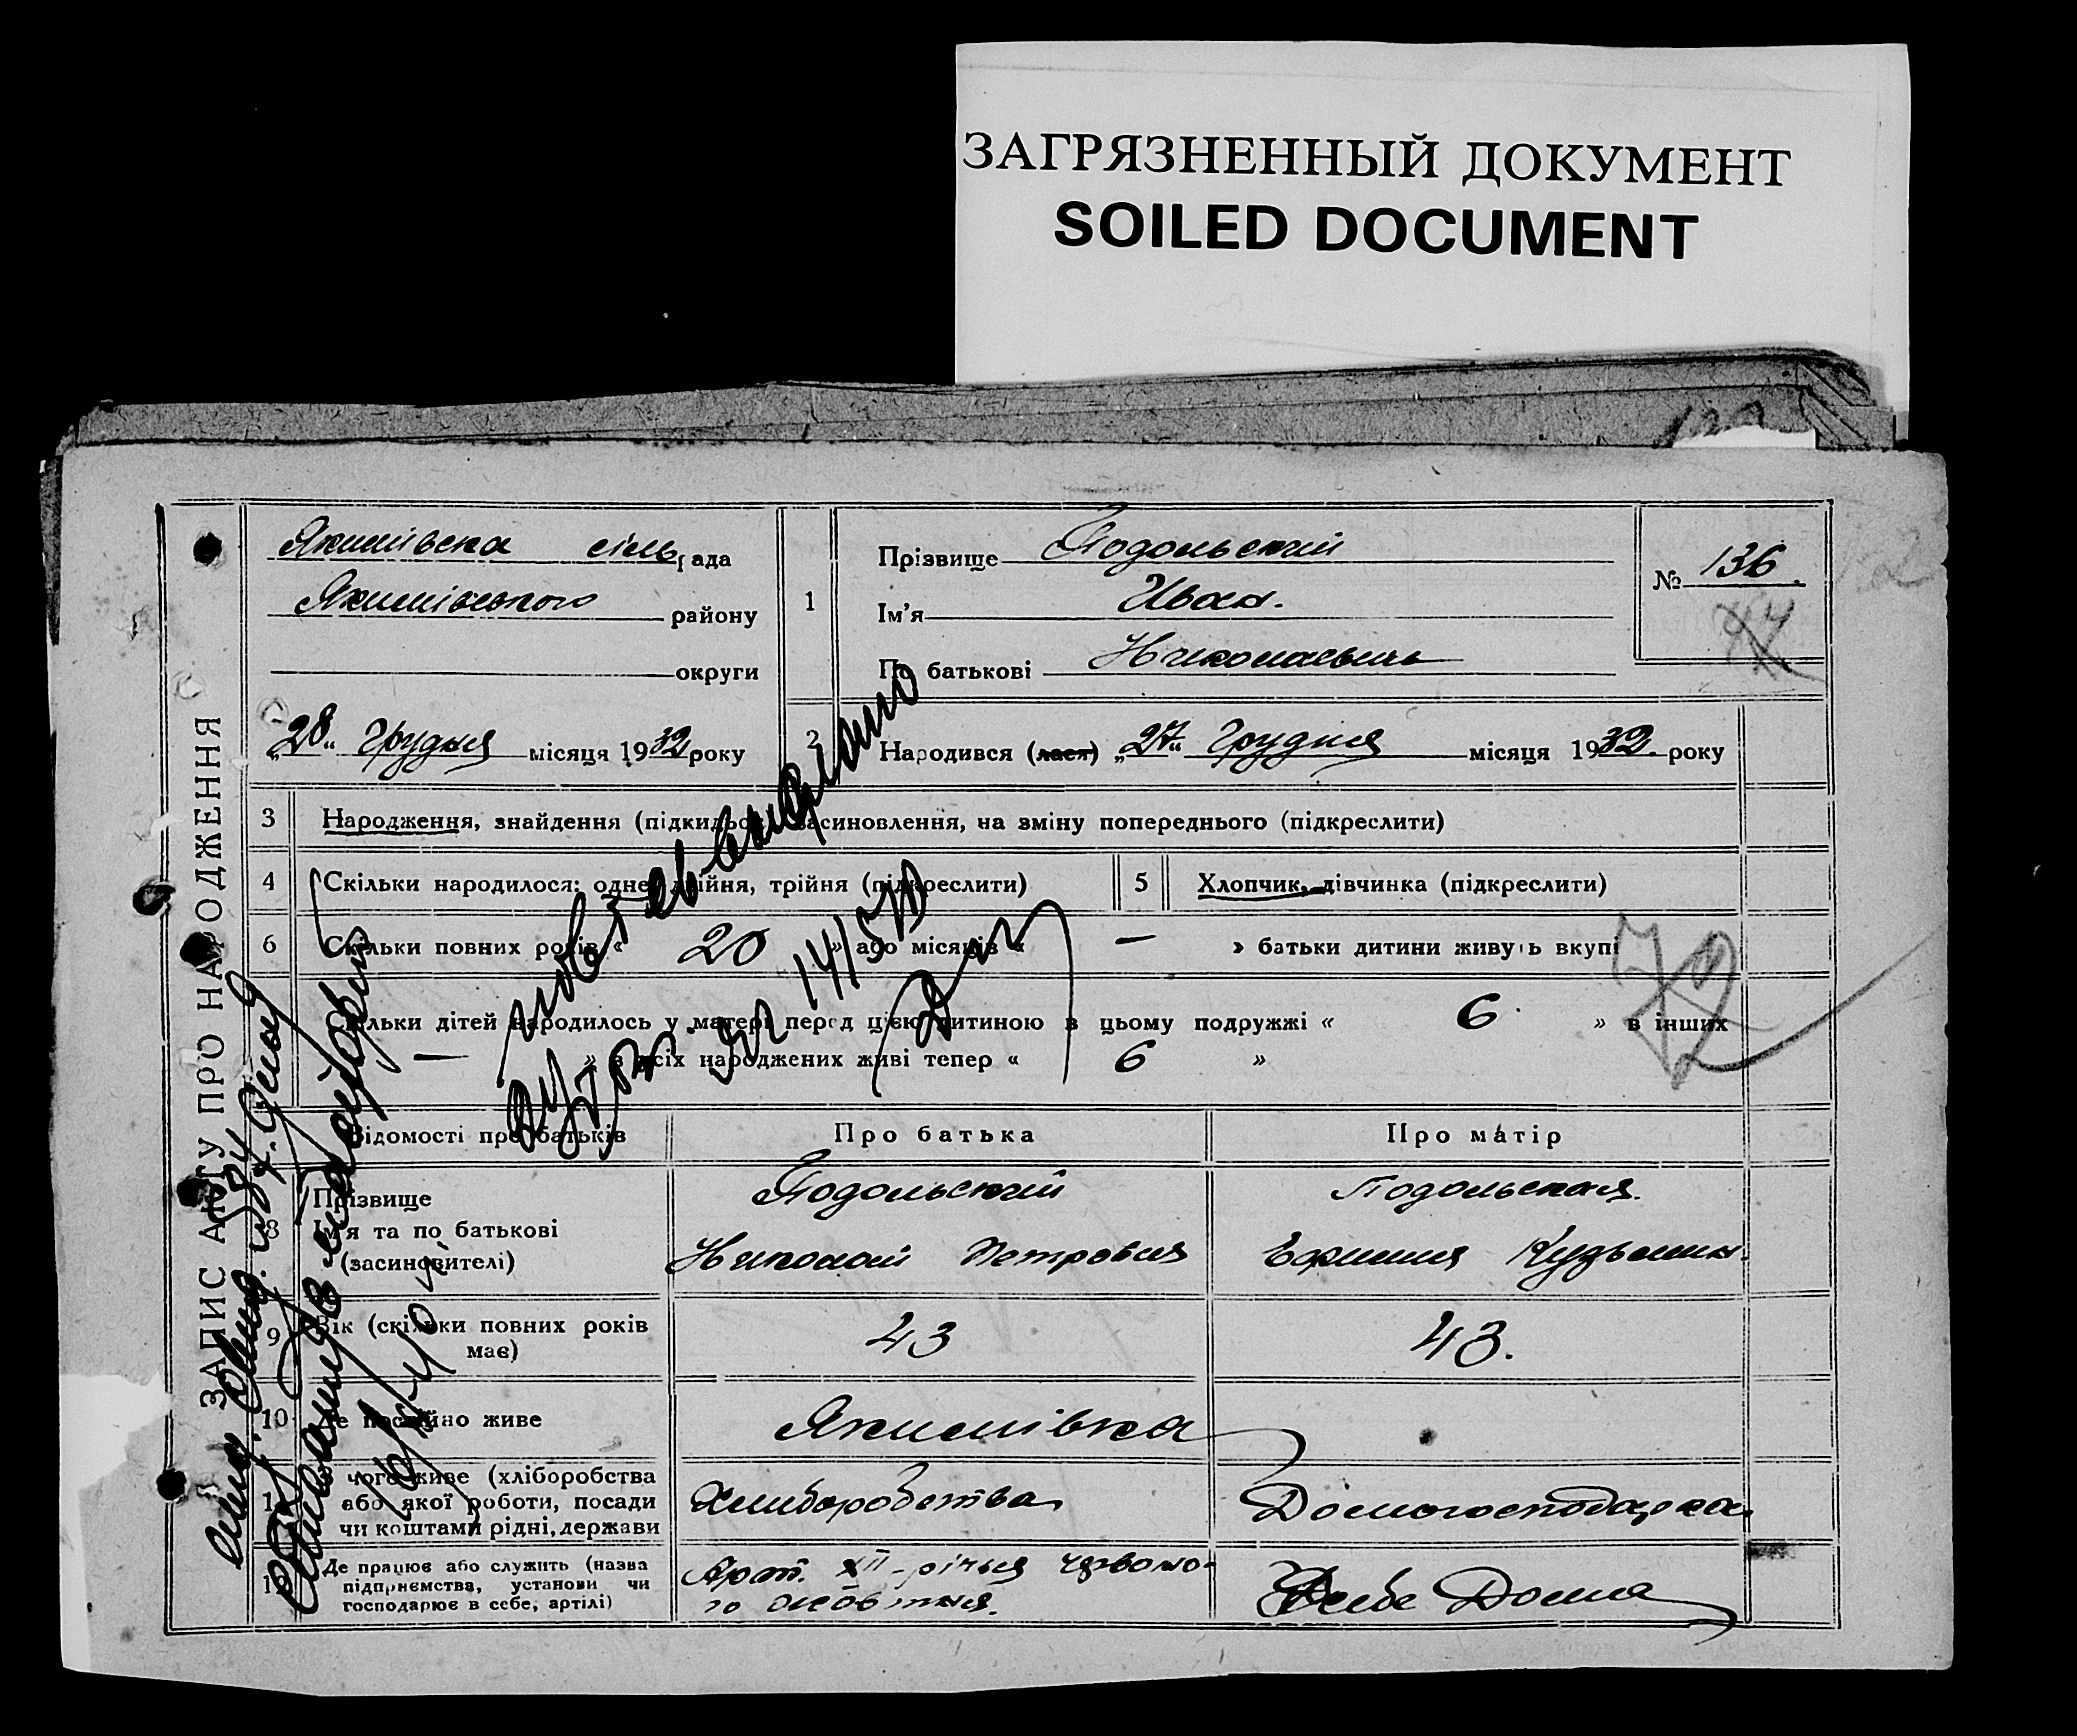 ЗАГРЯЗНЕННЫЙ ДОКУМЕНТ
SOILED DOCUMENT
ЗАПИС АКТУ ПРО НАРОДЖЕННЯ
Якимівська сільрада
Якимівського району
округи
„28“ Грудня місяця 1932 року
1
Прізвище Подольський
Ім'я Иван.
По батькові Николаевич
№ 136.
2
Народився (лася) „27“ Грудня місяця 1932. року
3 Народження, знайдення (підкидьок), засиновлення, на зміну попереднього (підкреслити)
4 Скільки народилося: одне, двійня, трійня (підкреслити)
5 Хлопчик, дівчинка (підкреслити)
6 Скільки повних років « 20 » або місяців « — » батьки дитини живуть вкупі
72
Скільки дітей народилось у матері перед цією дитиною в цьому подружжі « 6 » в інших
— » в усіх народжених живі тепер « 6 »
Відомості про батьків
Про батька
Про матір
8 Прізвище
Ім'я та по батькові
(засиновителі)
Подольський
Николай Петрович
Подольская.
Ефимия Кузьмин.
9 Вік (скільки повних років
має)
43
43.
10 Де постійно живе
Якимівка
чого живе (хліборобства
або якої роботи, посади
чи коштами рідні, держави
Хлиборобства
Домогосподарка
Де працює або служить (назва
підприємства, установи чи
господарює в себе, артілі)
Арт. XII-річчя червоно-
го жовтня.
Себе Дома